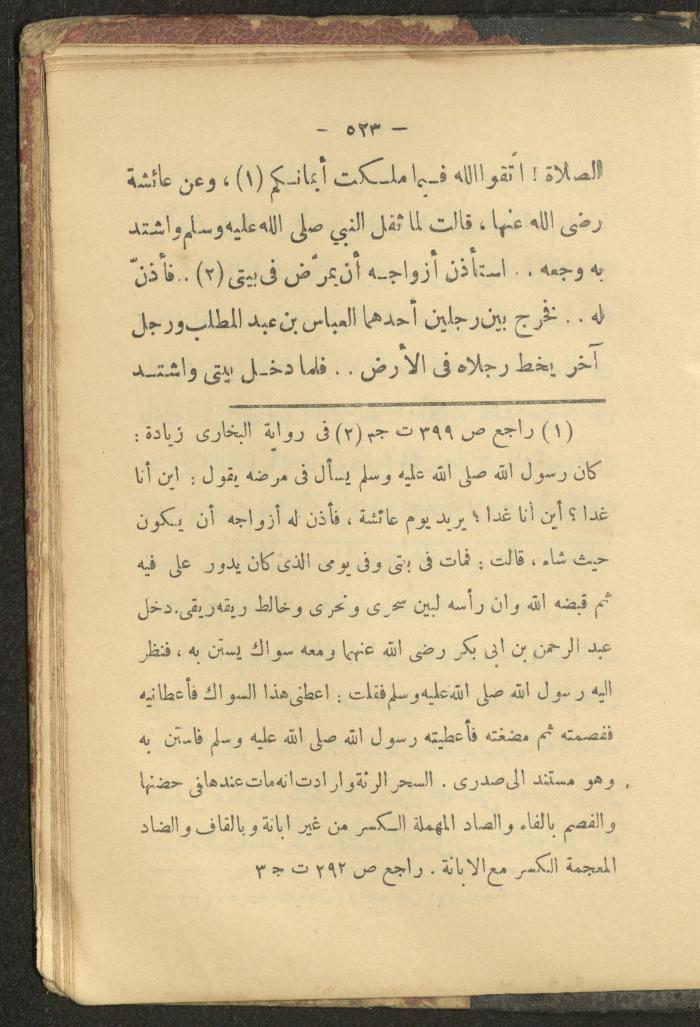 — ٥٢٣ —
الصلاة ! اتّقوا الله فيما ملكت أيمانكم (١) ، وعن عائشة
رضى الله عنها ، قالت لما ثقل النبي صلى الله عليه وسلم واشتد
به وجعه . . استأذن أزواجه أن يمرّض فى بيتى (٢) . . فأذنّ
له . . فخرج بين رجلين أحدهما العباس بن عبد المطلب ورجل
آخر يخط رجلاه فى الأرض . . فلما دخل بيتى واشتد
(١) راجع ص ٣٩٩ ت ج٣ (٢) فى رواية البخارى زيادة :
كان رسول الله صلى الله عليه وسلم يسأل فى مرضه يقول : اين أنا
غدا ؟ أين أنا غدا ؟ يريد يوم عائشة ، فأذن له أزواجه أن يكون
حيث شاء ، قالت : فمات فى بيتى وفى يومى الذى كان يدور على فيه
ثم قبضه الله وان رأسه لبين سحرى ونحرى وخالط ريقه ريقى . دخل
عبد الرحمن بن ابى بكر رضى الله عنهما ومعه سواك يستن به ، فنظر
اليه رسول الله صلى الله عليه وسلم فقلت : اعطنى هذا السواك فأعطانيه
ففصمته ثم مضغته فأعطيته رسول الله صلى الله عليه وسلم فاستن به
وهو مستند الى صدرى . السحر الرئة وارادت انه مات عندها فى حضنها
والفصم بالفاء والصاد المهملة الكسر من غير ابانة وبالقاف والضاد
المعجمة الكسر مع الابانة . راجع ص ٢٩٢ ت ج ٣